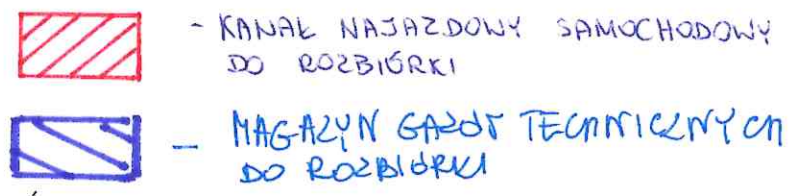 - KANAŁ NAJAZDOWY SAMOCHODOWY
DO ROZBIÓRKI
- MAGAZYN GAZÓW TECHNICZNYCH
DO ROZBIÓRKI